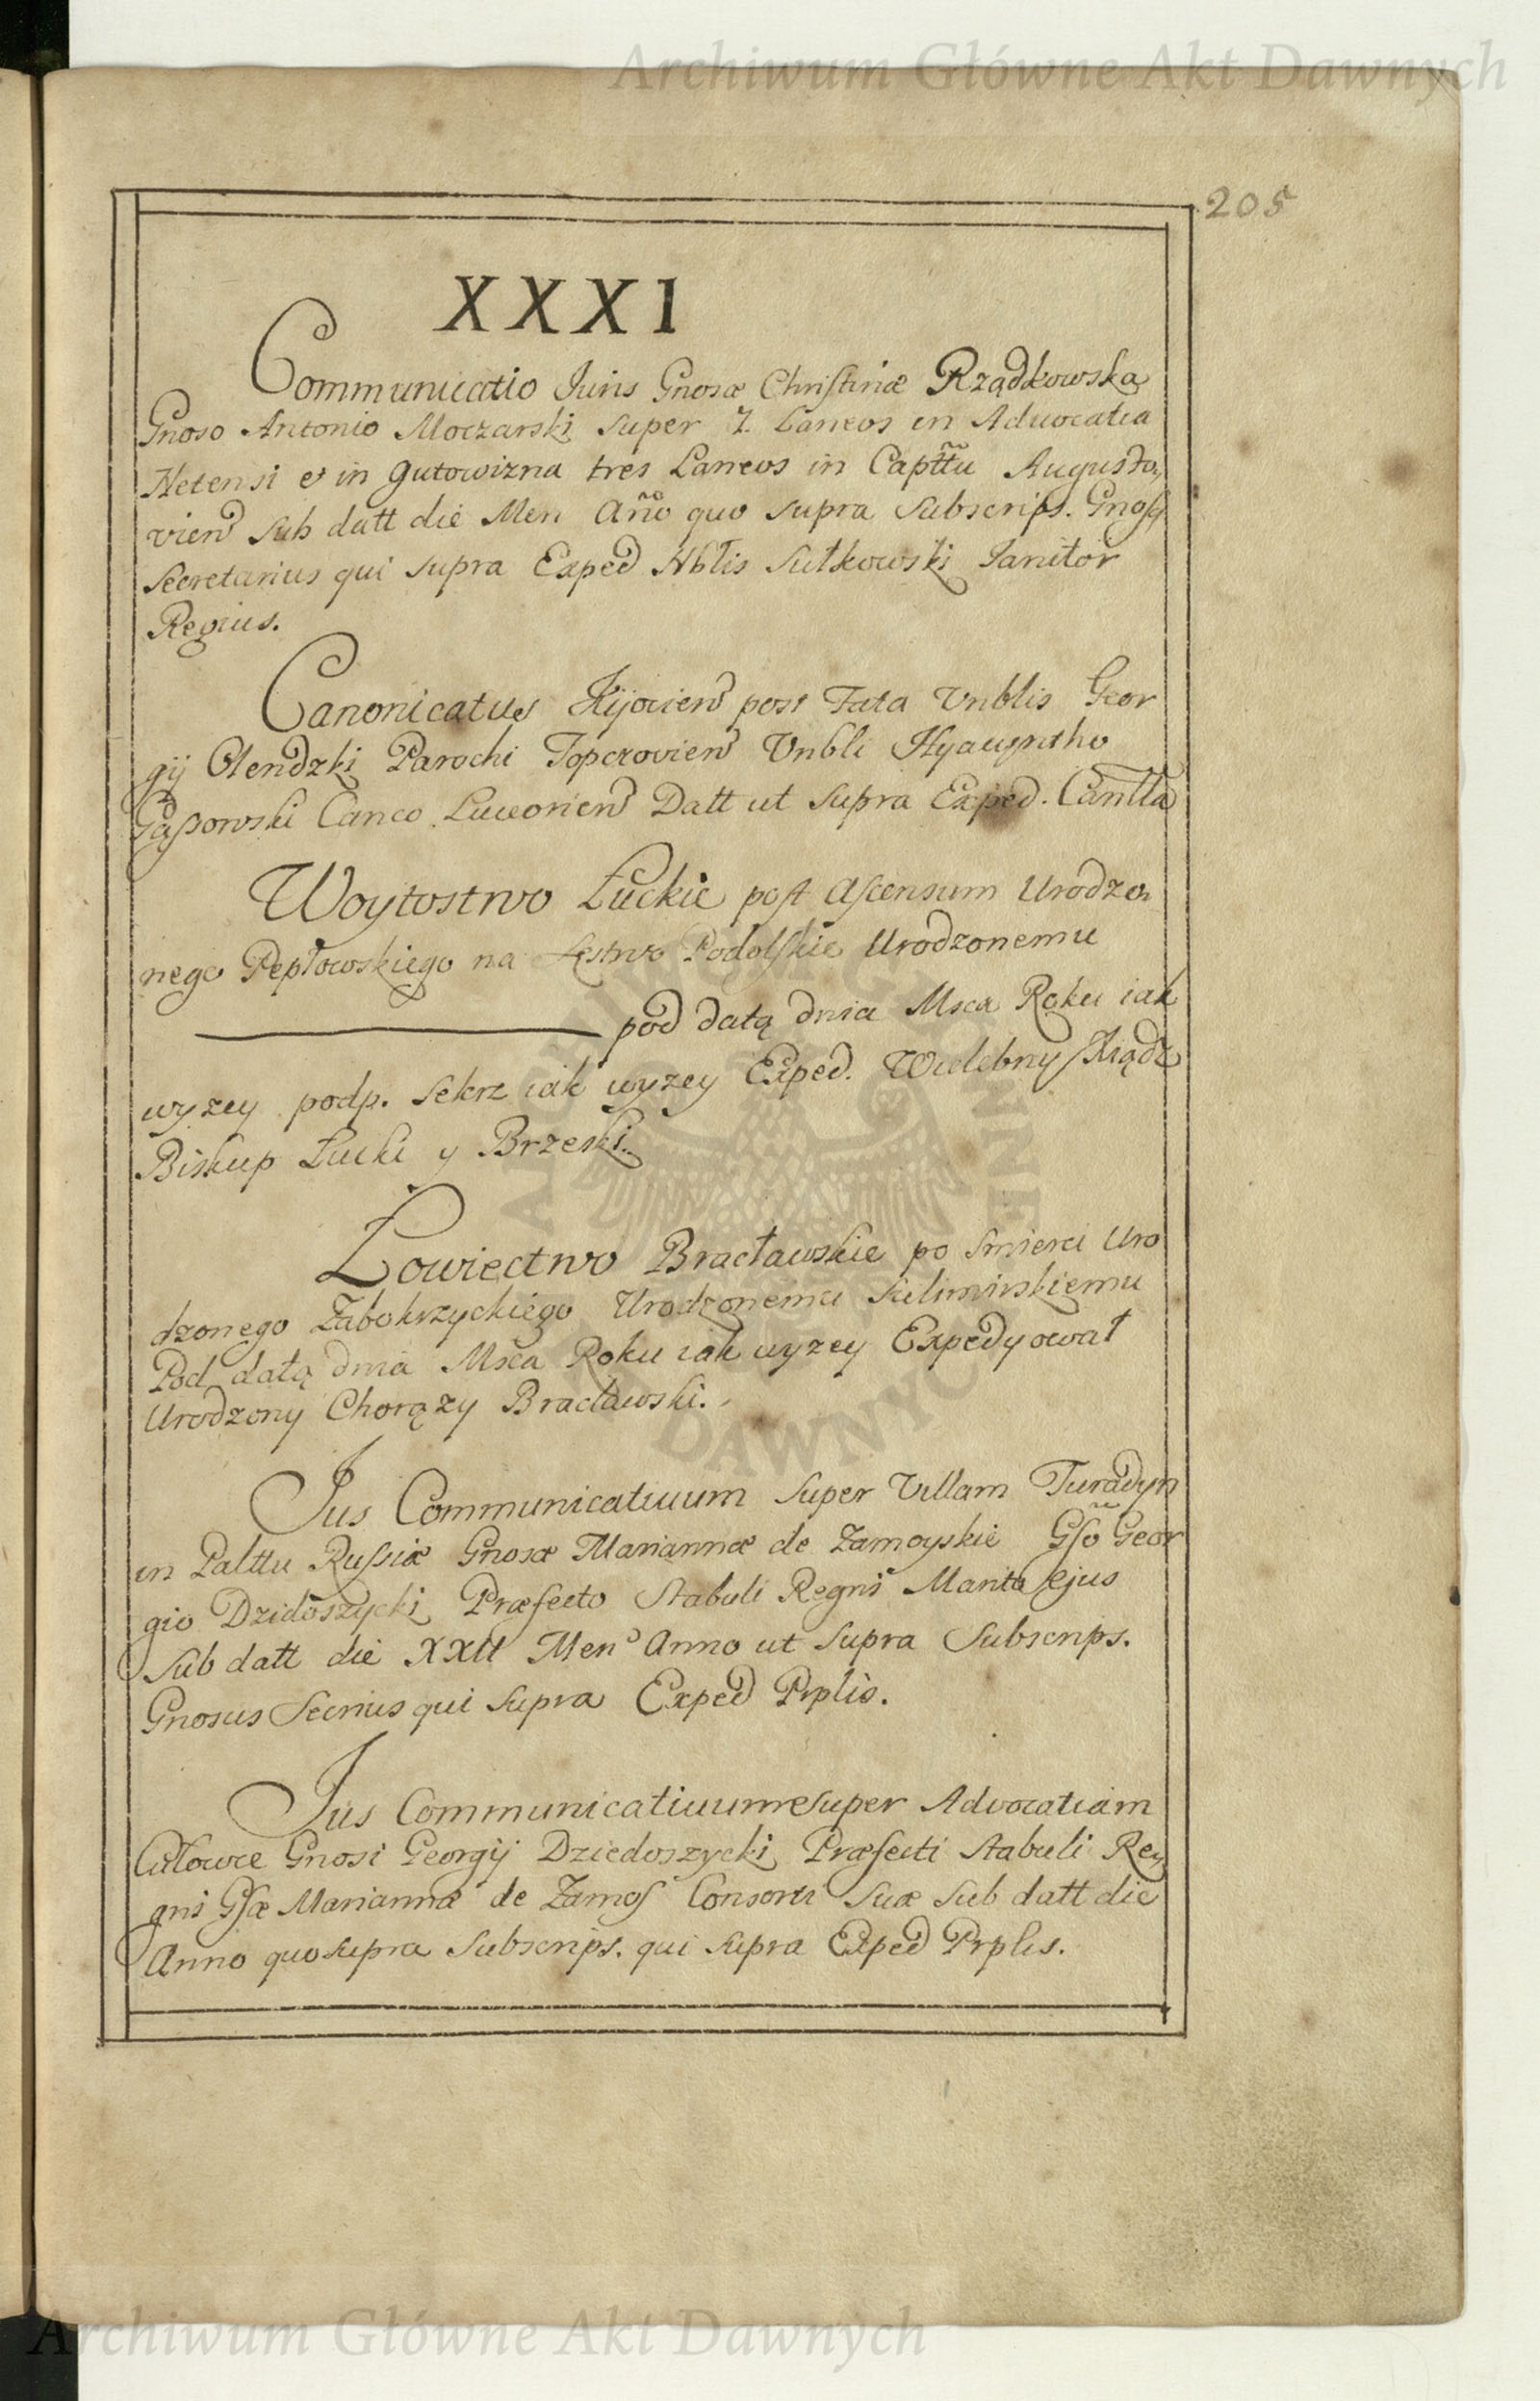 Archiwum Główne Akt Dawnych
205
XXXI
Communicatio Juris Gnosæ Christinæ Rządkowska
Gnoso Antonio Moczarski Super 7. Laneos in Advocatia
Netensi et in Gutowizna tres Laneos in Capttu Augusto-
vien Sub datt die Men Año quo supra Subscrips. Gnosq
Secretarius qui supra Exped Nblis Sułkowski Janitor
Regius.
Canonicatus Kijovien post Fata Vnblis Geor
gij Olendzki Parochi Topczovien Vnbli Hyacyntho
Gąssowski Canco Luceorien Datt ut Supra Exped. Canlla
Woytostwo Łuckie post Ascensum Urodzo-
nego Pepłowskiego na Łostwo Podolskie Urodzonemu
pod datą dnia Msca Roku iak
wyzey podp. Sekrz iak wyzey Exped. Wielebny Xiądz
Biskup Łucki y Brzeski.
Łowiectwo Bracławskie po Smierci Uro
dzonego Zabokrzyckiego Urodzonemu Sulimirskiemu
Pod datą dnia Msca Roku iak wyzey Expedyował
Urodzony Chorązy Bracławski.
Jus Communicativum Super Villam Turadyn
in Palttu Russiæ Gnosæ Mariannæ de Zamoyskie Gso Geor
gio Dzidoszycki Præfecto Stabuli Regni Marito ejus
Sub datt die XXII Men Anno ut Supra Subscrips.
Gnosus Secrius qui Supra Exped Prplis.
Jus Communicativum Super Advocatiam
Culowce Gnosi Georgij Dziedoszycki Præfecti Stabuli Re-
gni Gsæ Mariannæ de Zamos Consorti Suæ Sub datt die
Anno quo supra Subscrips. qui supra Exped Prplis.
ARCHIWUM GŁÓWNE AKT DAWNYCH
Archiwum Główne Akt Dawnych